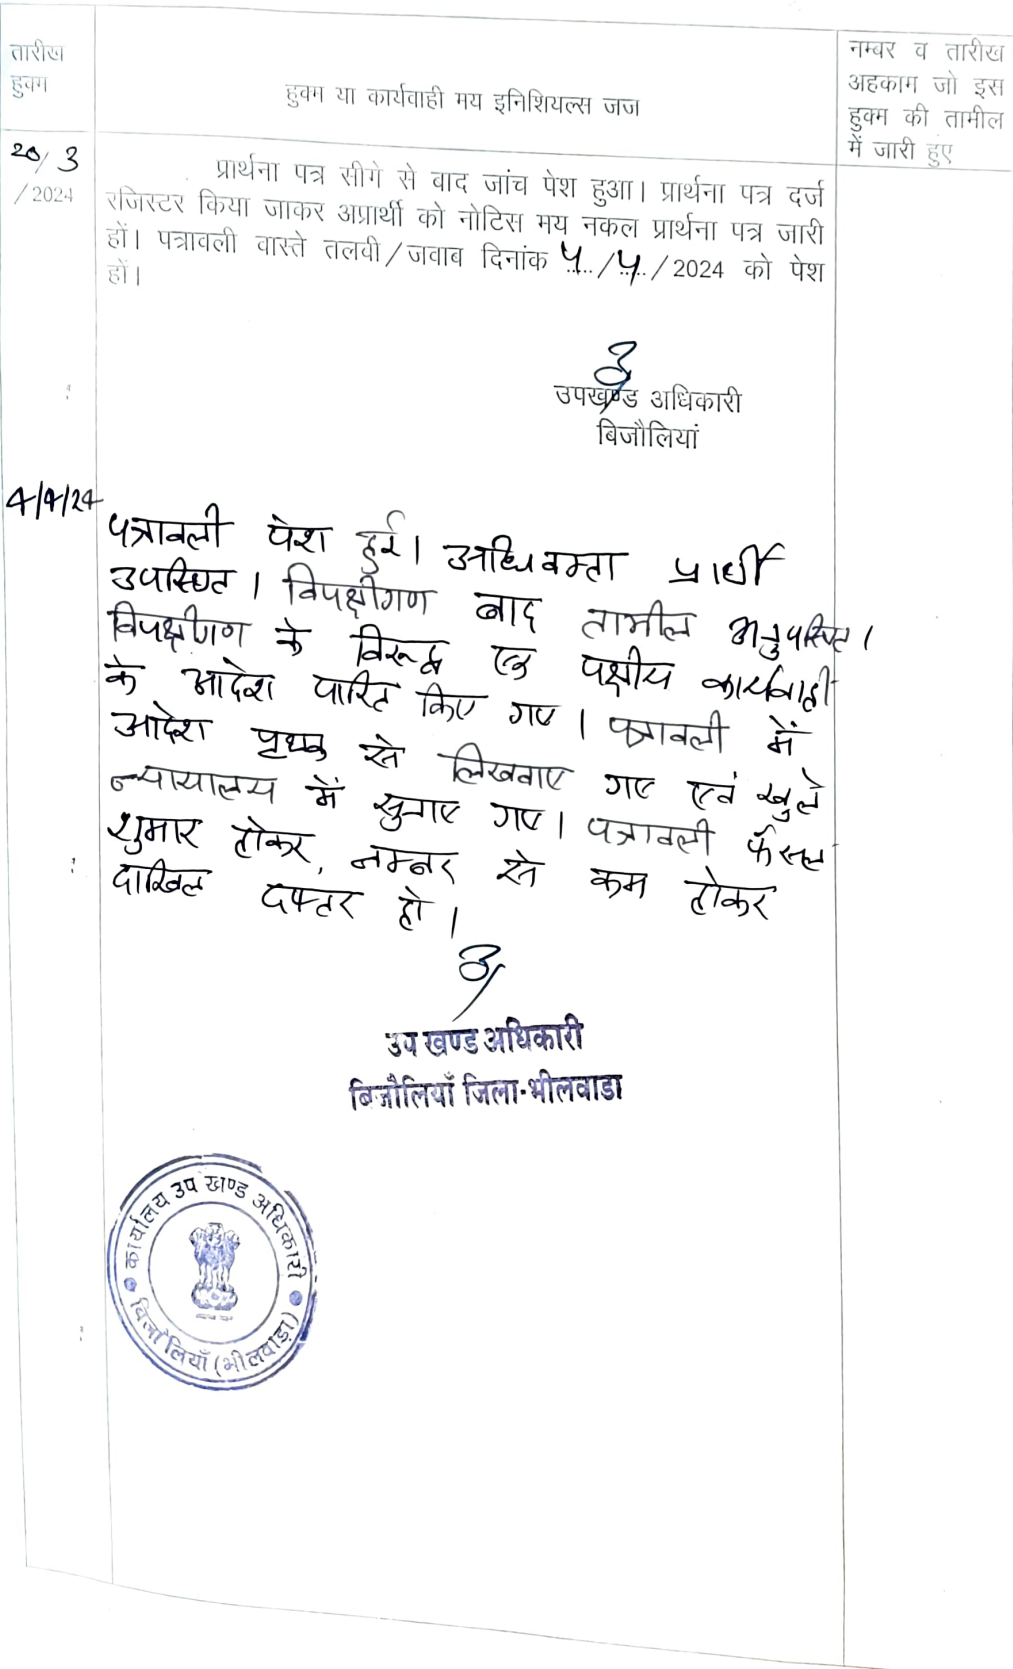 तारीख
हुक्म
हुक्म या कार्यवाही मय इनिशियल्स जज
नम्बर व तारीख
अहकाम जो इस
हुक्म की तामील
में जारी हुए
20/3
/2024
प्रार्थना पत्र सीगे से वाद जांच पेश हुआ। प्रार्थना पत्र दर्ज
रजिस्टर किया जाकर अप्रार्थी को नोटिस मय नकल प्रार्थना पत्र जारी
हों। पत्रावली वास्ते तलवी/जवाब दिनांक 4/4/2024 को पेश
हों।
उपखण्ड अधिकारी
बिजौलियां
4/4/24
पत्रावली पेश हुई। अधिवक्ता प्रार्थी
उपस्थित। विपक्षीगण बाद तामील अनुपस्थित।
विपक्षीगण के विरूद्ध एक पक्षीय कार्यवाही
के आदेश पारित किए गए। पत्रावली में
आदेश पृथक से लिखवाए गए एवं खुले
न्यायालय में सुनाए गए। पत्रावली फैसल
शुमार होकर, नम्बर से कम होकर
दाखिल दफ्तर हो।
उप खण्ड अधिकारी
बिजौलियाँ जिला-भीलवाडा
कार्यालय उप खण्ड अधिकारी
बिजौलियाँ (भीलवाड़ा)